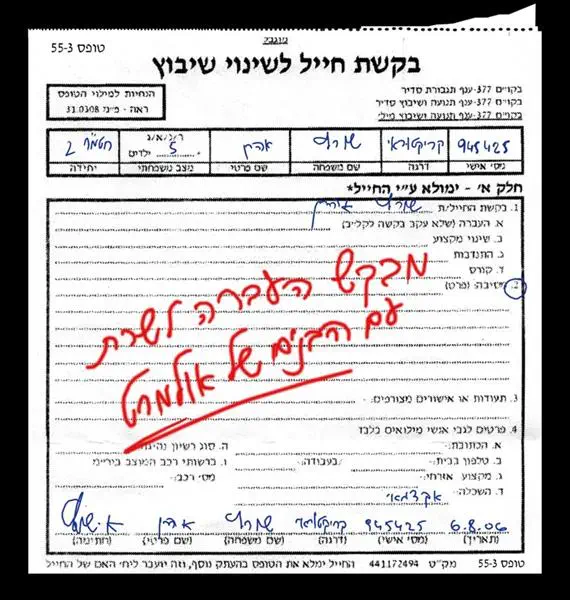 מוגבל
טופס 55-3
בקשת חייל לשינוי שיבוץ
בקו״ם 377-ענף תגבורת סדיר
בקו״ם 377-ענף תנועה ושיבוץ סדיר
בקו״ם 377-ענף תנועה ושיבוץ מילי
הנחיות למילוי הטופס
ראה - פ״מ 31.0308
945425 שמרלי אהרן ר/נ/א/ג 5 ילדים 2
מס׳ אישי דרגה שם משפחה שם פרטי מצב משפחתי יחידה
חלק א׳ - ימולא ע״י החייל*
1. בקשת החייל/ת שמרלי אהרן
א. העברה (שלא עקב בקשה לקל״ב)
ב. שינוי מקצוע
ג. התנדבות
ד. קורס
2. הסיבה: (פרט)
מבקש העברה לשרת
עם הבנים של אולמרט
3. תעודות או אישורים מצורפים:
4. פרטים לגבי אנשי מילואים בלבד
א. הכתובת: ה. סוג רשיון נהיגה
ב. טלפון בבית: בעבודה: ו. ברשותי רכב המוצב ביר״מ
ג. מקצוע אזרחי: מס׳ רכב:
ד. השכלה:
6.8.06 945425 שמרלי אהרן
(תאריך) (מס׳ אישי) (דרגה) (שם משפחה) (שם פרטי) (חתימה)
טופס 55-3 מק״ט 441172494 החייל ימלא את הטופס בהעתק נוסף, וזה יועבר ליח׳ האם של החייל